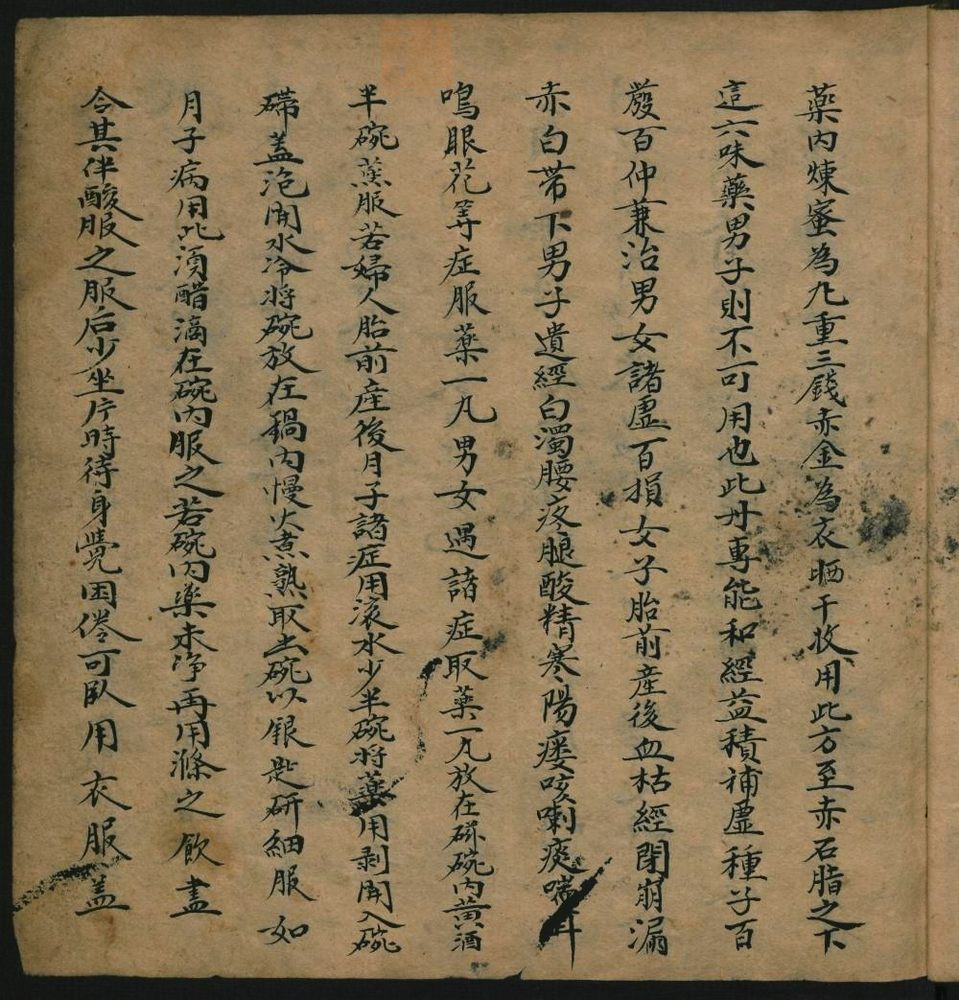 藥內煉蜜為丸重三錢赤金為衣晒干收用此方至赤石脂之下
這六味藥男子則不可用也此丹專能和經益積補虛種子百
發百仲兼治男女諸虛百損女子胎前產後血枯經閉崩漏
赤白帶下男子遺經白濁腰疼腿酸精寒陽痿咳喇痰喘耳
鳴眼花等症服藥一凡男女遇諸症取藥一凡放在磁碗內黃酒
半碗蒸服若婦人胎前產後月子諸症用滾水少半碗將藥用剥開入碗
碲盖泡開水冷將碗放在鍋內慢火煮熟取出碗以銀匙研細服如
月子病用此湏醋滴在碗內服之若碗內藥未净再用滌之飲盡
令其伴酸服之服后少坐片時待身覺困倦可臥用衣服盖